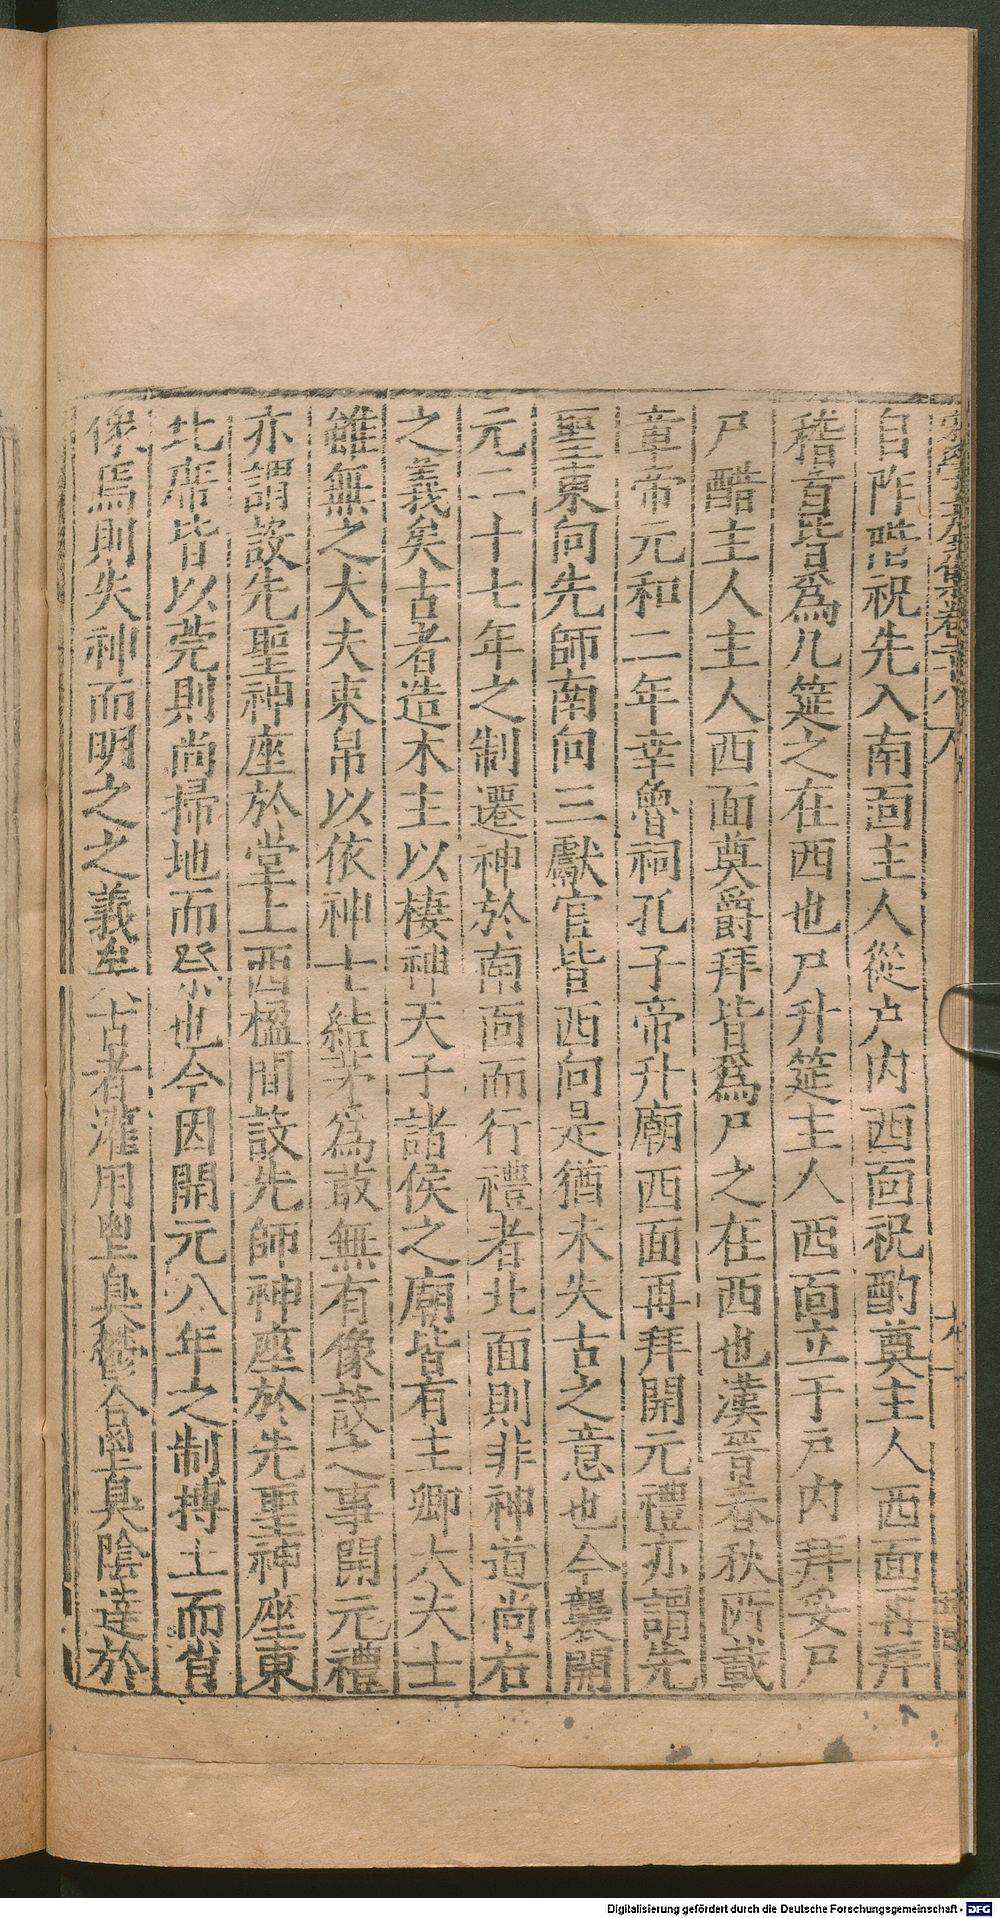 自阼階祝先入南面主人從户内西面祝酌奠主人西面再拜
稽首皆爲几筵之在西也尸升筵主人西面立于户内拜妥尸
尸醋主人主人西面奠爵拜皆爲尸之在西也漢晋春秋所載
章帝元和二年幸魯祠孔子帝升廟西面再拜開元禮亦謂先
聖東向先師南向三獻官皆西向是猶未失古之意也今襲開
元二十七年之制遷神於南面而行禮者北面則非神道尚右
之義矣古者造木主以棲神天子諸侯之廟皆有主卿大夫士
雖無之大夫束帛以依神士結茅爲菆無有像設之事開元禮
亦謂設先聖神座於堂上西楹間設先師神座於先聖神座東
北席皆以莞則尚掃地而祭也今因開元八年之制摶土而肖
像焉則失神而明之之義矣古者灌用鬯臭鬱合鬯臭陰達於
Digitalisierung gefördert durch die Deutsche Forschungsgemeinschaft - DFG